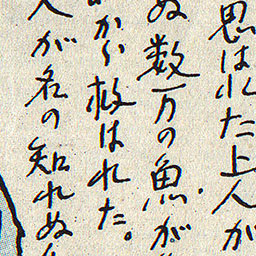 思はれた上人が
ぬ数万の魚が
から救はれた。
が名の知れぬ